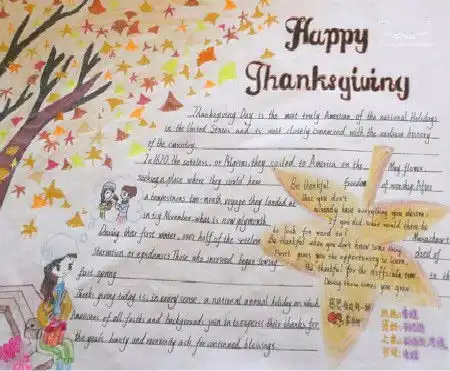 Happy
Thanksgiving
Thanksgiving Day is the most truly American of the national Holidays
in the United States and is most closely connected with the earliest history
of the country.
In 1620, the settlers, or Pilgrims, they sailed to America on the May flower,
seeking a place where they could have freedom of worship. After
a tempestuous two-month voyage they landed at
in icy November, what is now Plymouth
During their first winter, over half of the settlers died of
starvation or epidemics. Those who survived began sowing in the
first spring.
Thanksgiving today is, in every sense, a national annual holiday on which
Americans of all faiths and backgrounds join in to express their thanks for
the year's bounty and reverently ask for continued blessings.
Be thankful
that you don't
already have everything you desire.
If you did, what would there be
to look for ward to?
Be thankful when you don't know some thing
for it gives you the opportunity to learn.
Be thankful for the difficult time.
During those times you grow.